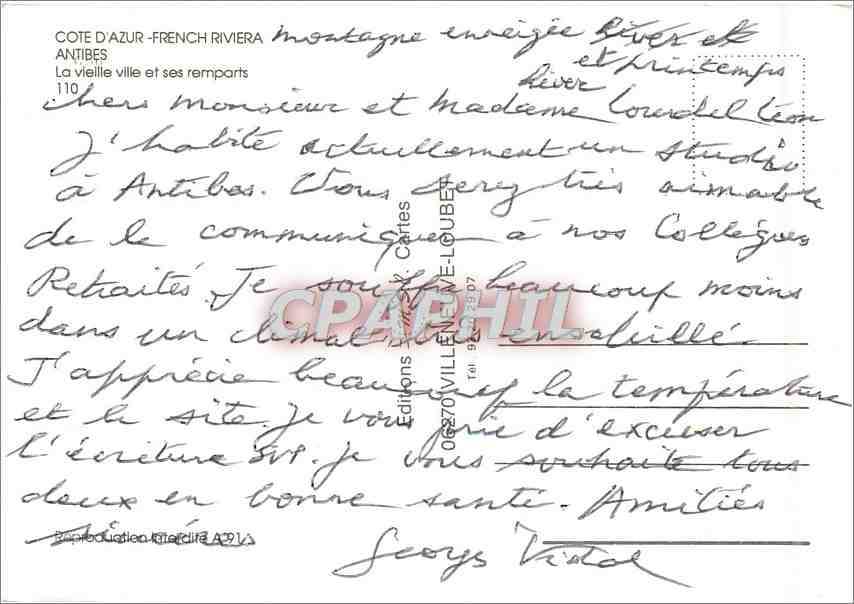 COTE D'AZUR -FRENCH RIVIERA
ANTIBES
La vieille ville et ses remparts
110
montagne enneigée
et printemps
hiver
chers Monsieur et Madame Lourdel Léon
J'habite actuellement un studio
à Antibes. Vous serez très aimable
de le communiquer à nos Collègues
Retraités. Je souffre beaucoup moins
dans un climat très ensoleillé
J'apprécie beaucoup la température
et le site. Je vous prie d'excuser
l'écriture SVP. Je vous souhaite tous
deux en bonne santé. Amitiés
sincères
Georges Vidal
Reproduction Interdite A 91
Editions Cartes
06270 VILLENEUVE-LOUBET
CPAPHIL